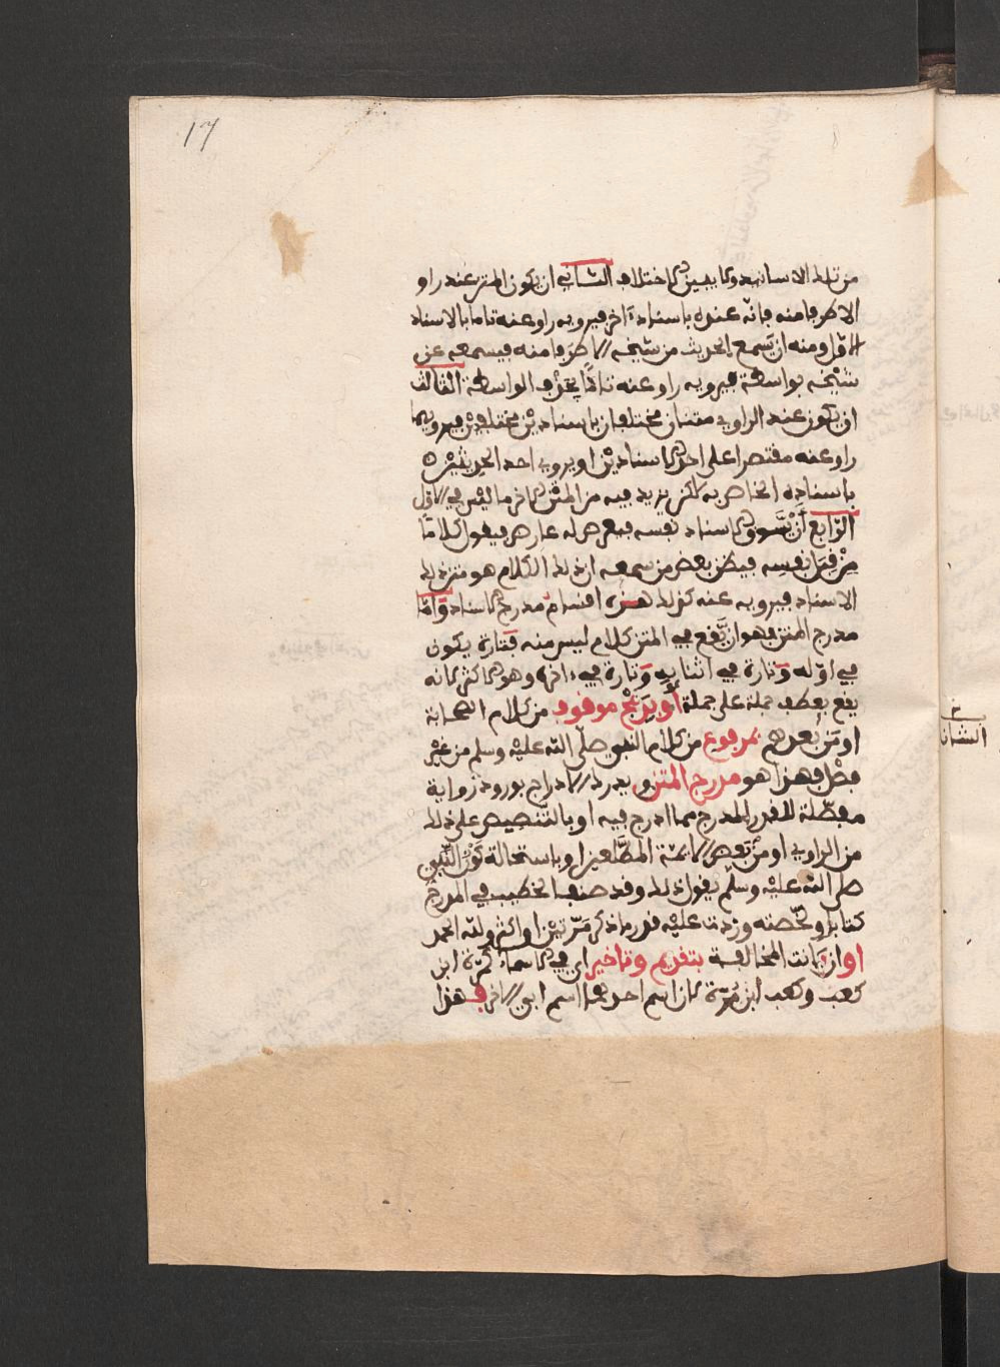 17
من تلك الاسانيد ولا يبين الاختلاف الثاني ان يكون المتن عند راو
الا طرفا منه فانه عنده باسناد ءاخر فيرويه راو عنه تاما بالاسناد
الاول ومنه ان يسمع الحديث من شيخه الا طرفا منه فيسمعه عن
شيخه بواسطة فيرويه راو عنه تاما بحذف الواسطة الثالث
ان يكون عند الراوي متنان مختلفان باسنادين مختلفين فيرويهما
راو عنه مقتصرا على احد الاسنادين او يروي احد الحديثين
باسناده الخاص به لاكن يزيد فيه من المتن الاخر ما ليس في الاول
الرابع ان يسوق الاسناد نفسه فيعرض له عارض فيقول كلاما
من قبل نفسه فيظن بعض من سمعه ان ذلك الكلام هو متن ذلك
الاسناد فيرويه عنه كذلك هذه اقسام مدرج الاسناد واما
مدرج المتن فهو ان يقع في المتن كلام ليس منه فتارة يكون
في اوله وتارة في اثنايه وتارة في ءاخره وهو الاكثر لانه
يقع بعطف جملة على جملة او بدمج موقوف من كلام الصحابة
او من بعدهم بمرفوع من كلام النبي صلى الله عليه وسلم من غير
فصل فهذا هو مدرج المتن ويدرك الادراج بورود رواية
مفصلة للقدر المدرج مما ادرج فيه او بالتنصيص على ذلك
من الراوي او من بعض الايمة المطلعين او باستحالة كون النبي
صلى الله عليه وسلم يقول ذلك وقد صنف الخطيب في المدرج
كتابا ولخصته وزدت عليه قدر ما ذكر مرتين او اكثر ولله الحمد
او ان كانت المخالفة بتقديم وتاخير اي في الاسماء كمرة ابن
كعب وكعب ابن مرة لان اسم احدهما اسم ابي الاخر فهذا